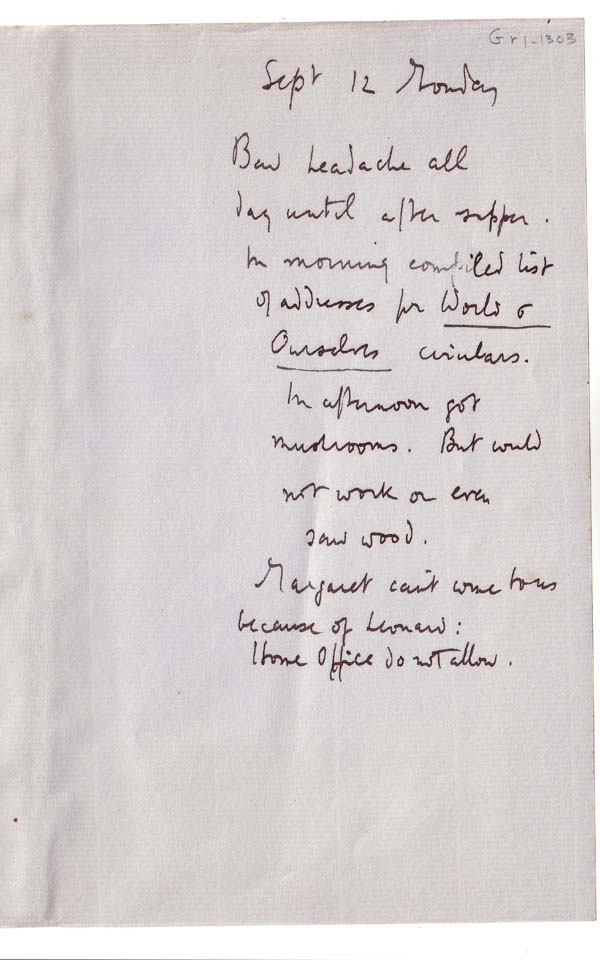 Gr1-1303
Sept 12 Monday
Bad headache all
day until after supper.
In morning compiled list
of addresses for World &
Ourselves circulars.
In afternoon got
mushrooms. But could
not work or even
saw wood.
Margaret can't come to us
because of Leonard:
Home Office do not allow.